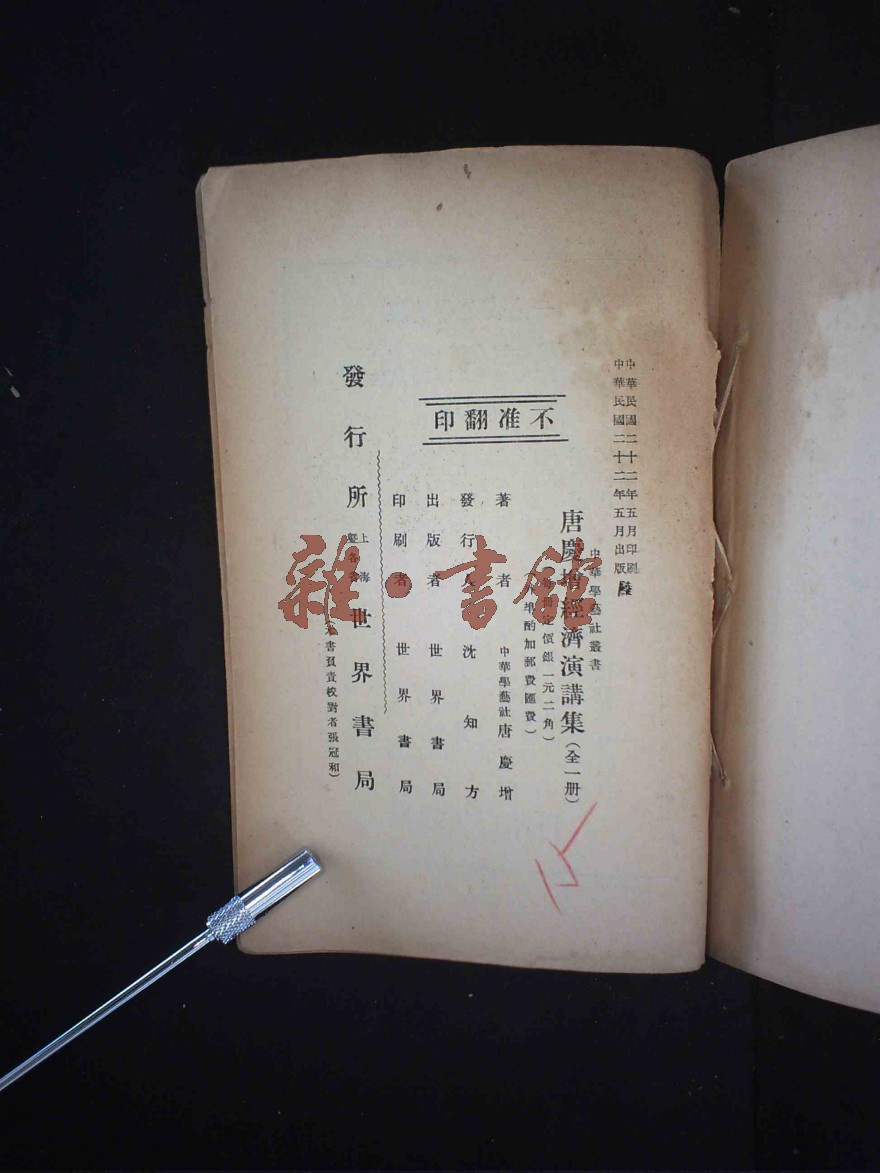 中華民國二十二年五月印刷
中華民國二十二年五月出版
中華學藝社叢書
唐慶增經濟演講集(全一册)
定價銀一元二角)
酌加郵費匯費)
不准翻印
著者 中華學藝社唐慶增
發行人 沈知方
出版者 世界書局
印刷者 世界書局
發行所 上海 暨各省 世界書局
書負責校對者張冠和)
雜·書館